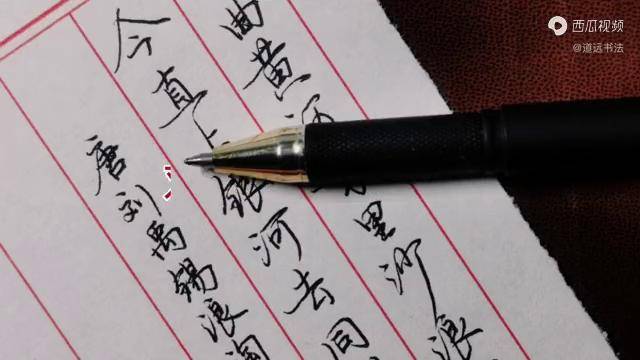 西瓜视频
@道远书法
曲黄河里沙浪
今直上银河去同
唐刘禹锡浪淘